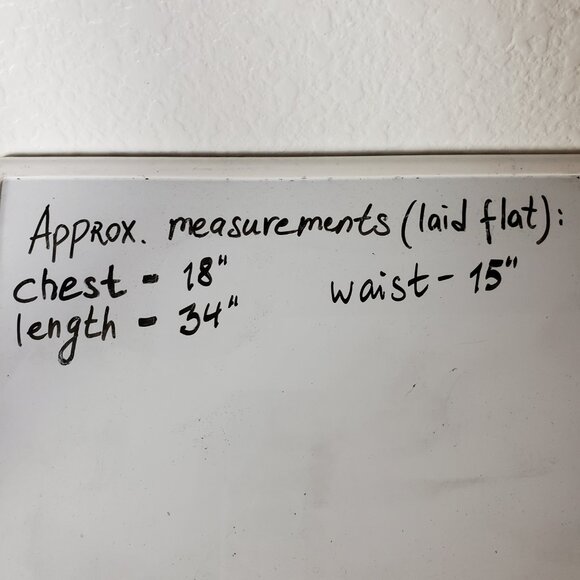 Approx. measurements (laid flat):
chest - 18" waist - 15"
length - 34"